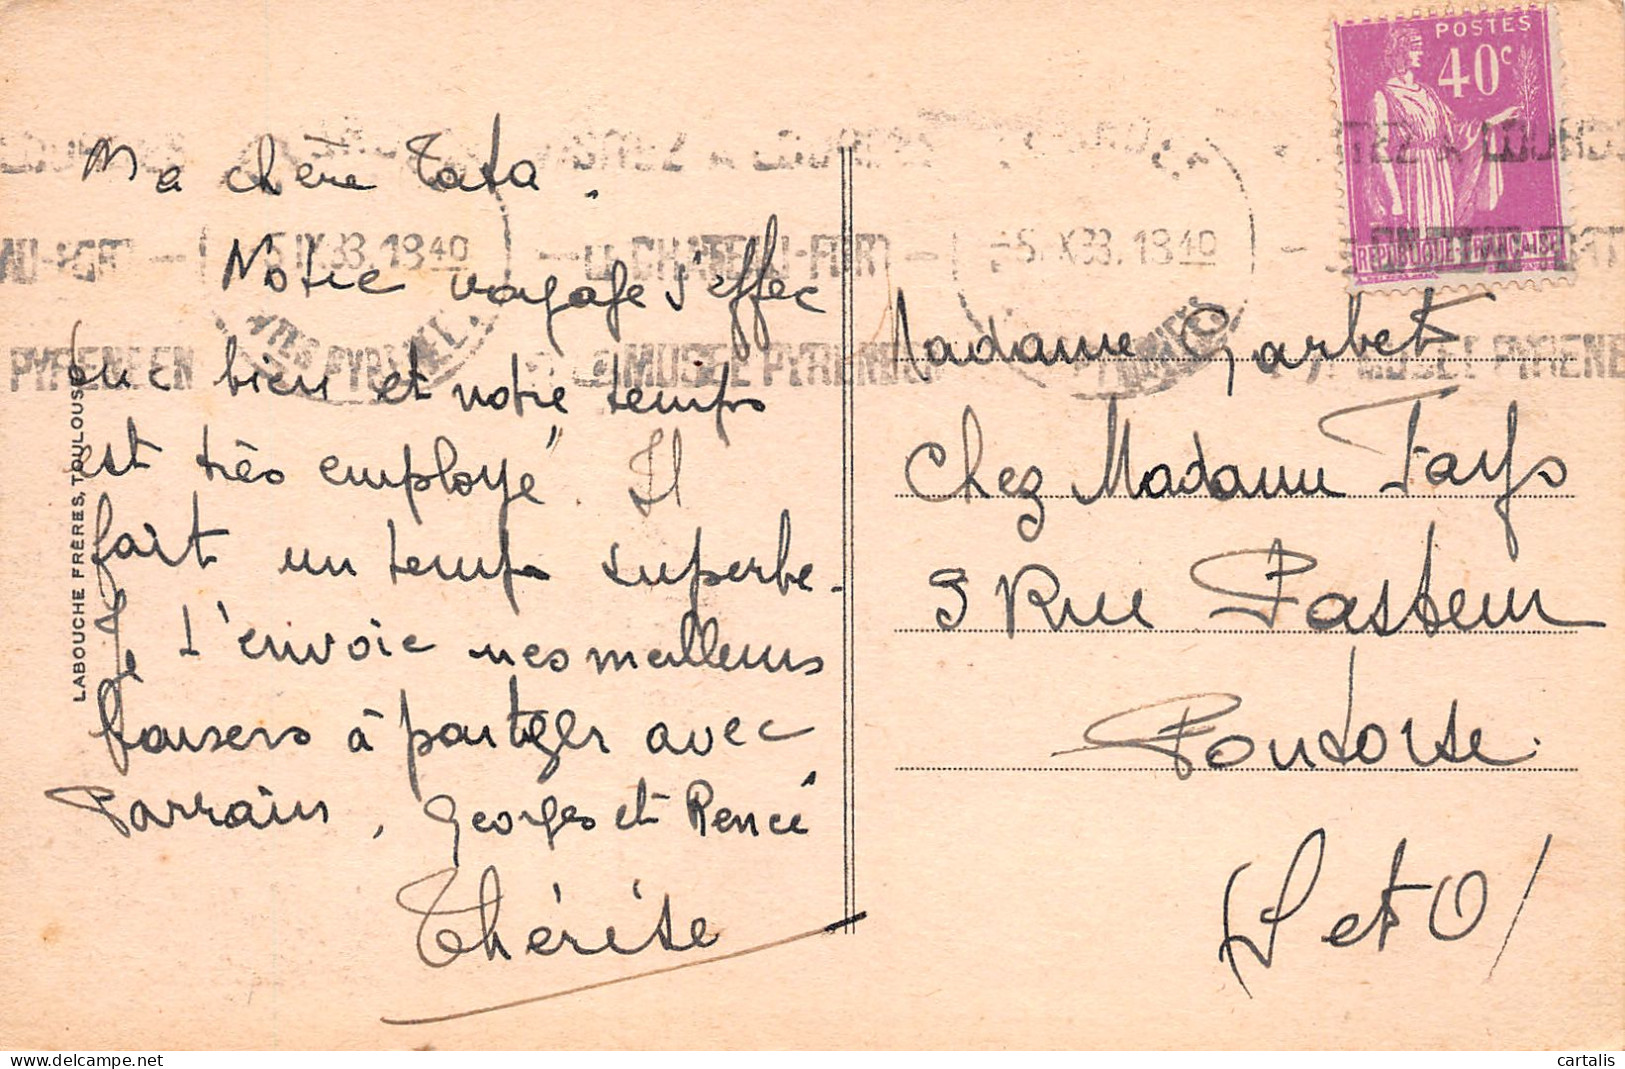 Ma chère Tata.
Notre voyage s'effec
tue bien et notre temps
est très employé. Il
fait un temps superbe.
Je t'envoie mes meilleurs
baisers à partager avec
Parrain, Georges et Renée
Thérèse
LABOUCHE FRÈRES, TOULOUSE
POSTES
40c
REPUBLIQUE FRANÇAISE
VISITEZ A LOURDES
LE CHATEAU-FORT
LE MUSEE PYRENEEN
18 40
Madame Garbet
Chez Madame Fays
3 Rue Pasteur
Pontoise.
(S et O)
cartalis